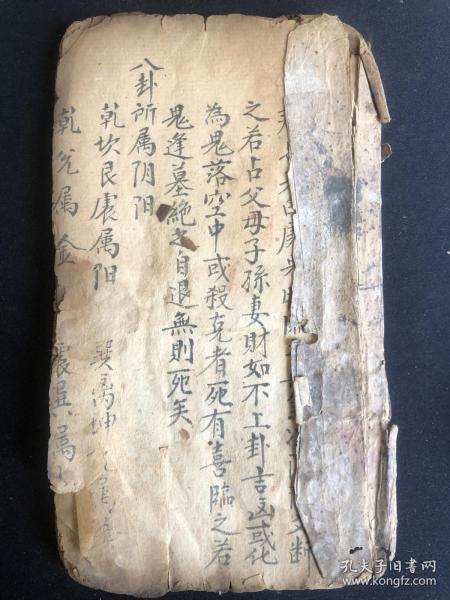 之若占父母子孫妻財如不上卦言凶或化
為鬼落空中或殺克者死有喜臨之若
鬼逢墓絶之自退無則死矣
八卦所属阴阳
乾坎艮震属阳 巽离坤
乾兊属金 震巽属
孔夫子旧书网
www.kongfz.com